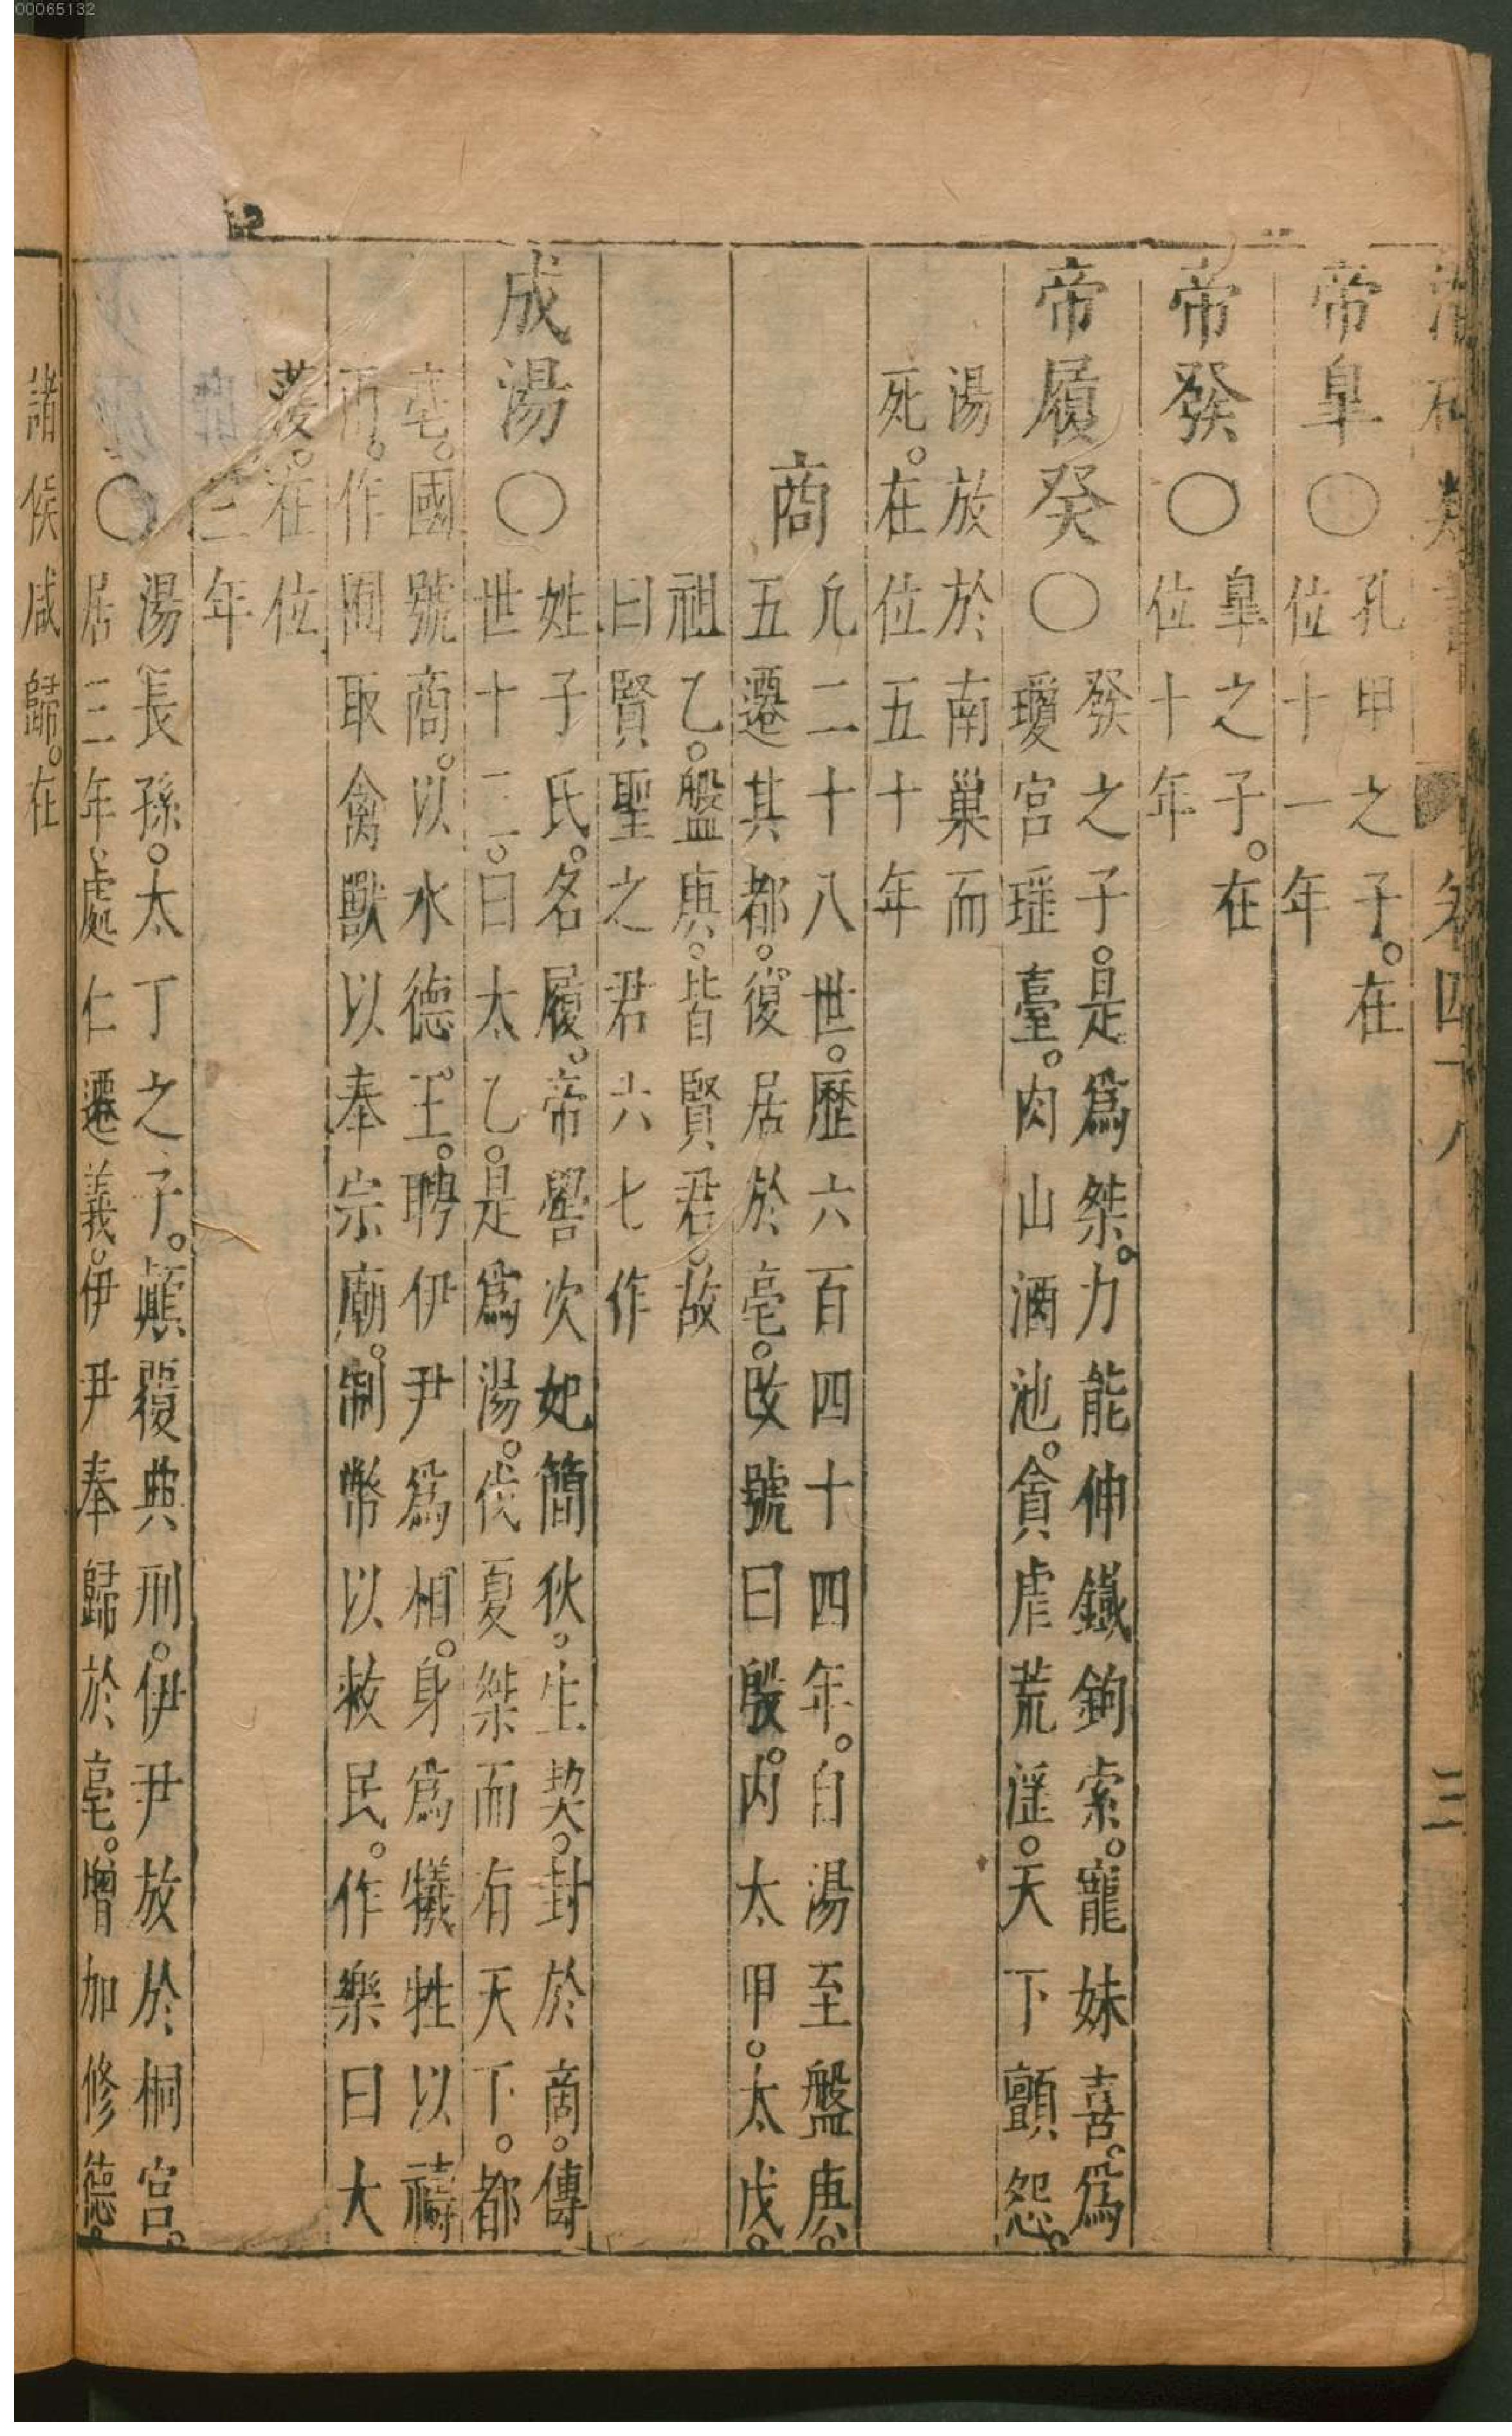 00065132
卷四十八
三
帝皐○
孔甲之子。在
位十一年
帝發○
皐之子。在
位十年
帝履癸○
發之子。是爲桀。力能伸鐡鉤索。寵妹喜。爲
瓊宫瑶臺。肉山酒池。貪虐荒淫。天下顫怨。
湯放於南巢而
死。在位五十年
商
凡二十八世。歷六百四十四年。自湯至盤庚。
五遷其都。復居於亳。改號曰殷。内太甲。太戊。
祖乙。盤庚。皆賢君。故
曰賢聖之君六七作
成湯○
姓子氏。名履。帝嚳次妃簡狄。生契。封於商。傳
世十二。曰太乙。是爲湯。伐夏桀而有天下。都
亳。國號商。以水德王。聘伊尹爲相。身爲犠牲以禱
雨。作囿取禽獸以奉宗廟。制幣以救民。作樂曰大
濩。在位
三年
○
湯長孫。太丁之子。顛覆典刑。伊尹放於桐宫。
居三年。處仁遷義。伊尹奉歸於亳。增加修德。
諸侯咸歸。在